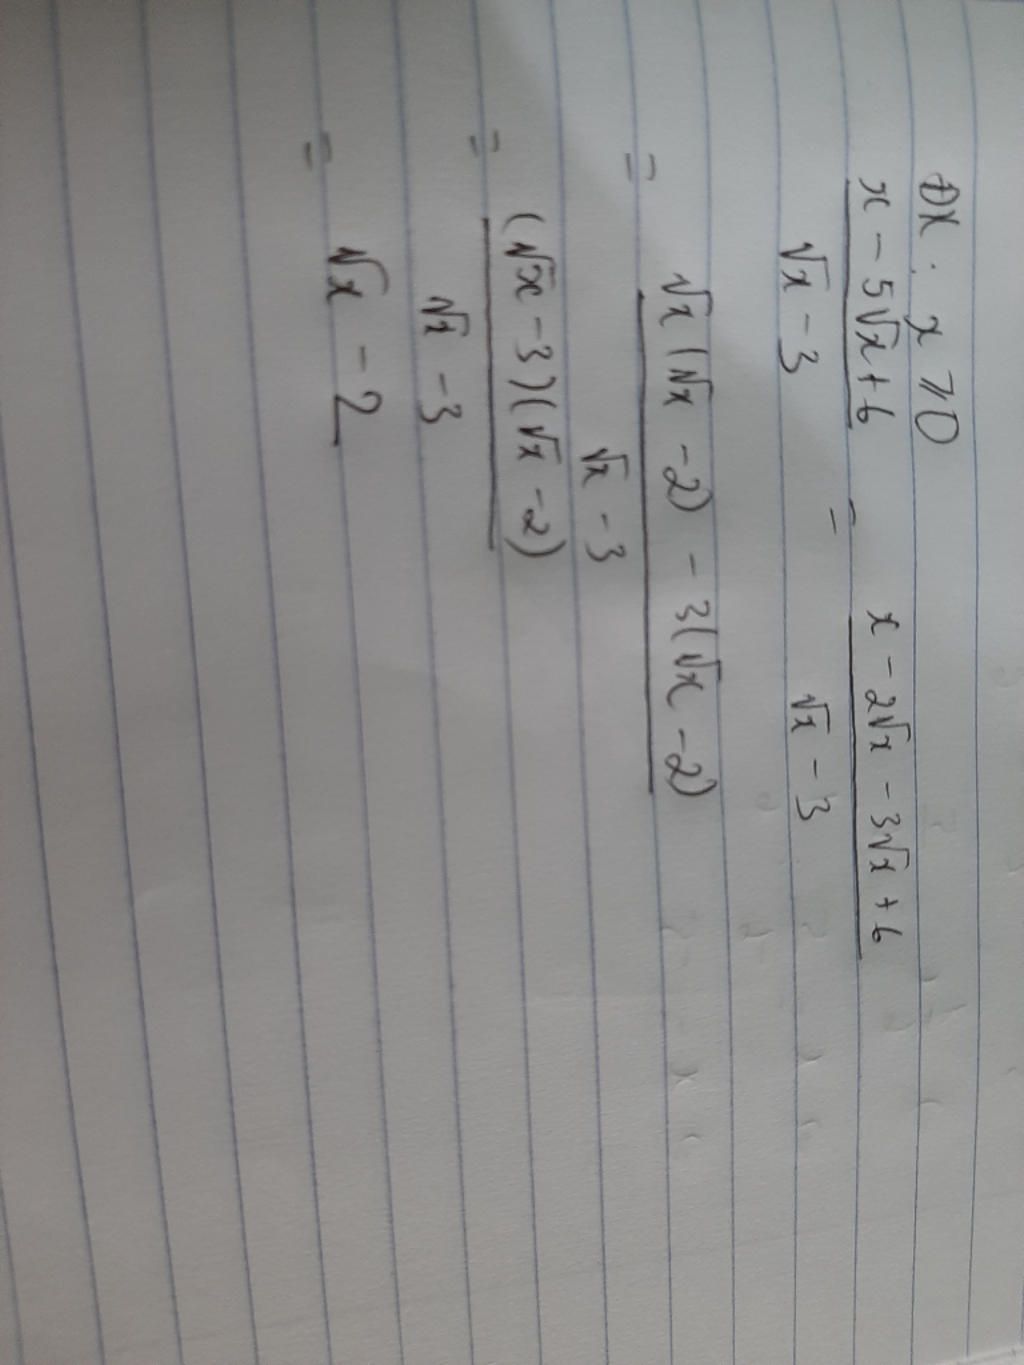 ĐK: x ⩾ 0
(x - 5√x + 6)/(√x - 3) = (x - 2√x - 3√x + 6)/(√x - 3)
= (√x(√x - 2) - 3(√x - 2))/(√x - 3)
= ((√x - 3)(√x - 2))/(√x - 3)
= √x - 2